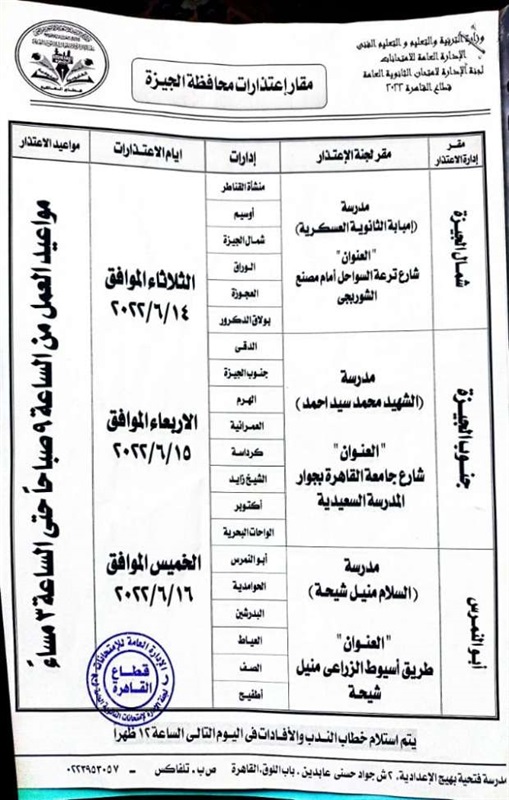 وزارة التربية والتعليم و التعليم الفنى
الإدارة العامة للامتحانات
لجنة الإدارة لامتحان الثانوية العامة
قطاع القاهرة ٢٠٢٢
مقار إعتذارات محافظة الجيزة
مقر
إدارة الاعتذار
مقر لجنة الإعتذار
إدارات
ايام الاعتذارات
مواعيد الاعتذار
شمال الجيزة
مدرسة
(إمبابة الثانوية العسكرية)
"العنوان"
شارع ترعة السواحل أمام مصنع
الشوربجى
منشأة القناطر
أوسيم
شمال الجيزة
الوراق
العجوزة
بولاق الدكرور
الثلاثاء الموافق
٢٠٢٢/٦/١٤
جنوب الجيزة
مدرسة
(الشهيد محمد سيد احمد)
"العنوان"
شارع جامعة القاهرة بجوار
المدرسة السعيدية
الدقى
جنوب الجيزة
الهرم
العمرانية
كرداسة
الشيخ زايد
أكتوبر
الواحات البحرية
الاربعاء الموافق
٢٠٢٢/٦/١٥
أبو النمرس
مدرسة
(السلام منيل شيحة)
"العنوان"
طريق أسيوط الزراعى منيل
شيحة
أبو النمرس
الحوامدية
البدرشين
العياط
الصف
أطفيح
الخميس الموافق
٢٠٢٢/٦/١٦
مواعيد العمل من الساعة ٩ صباحاً حتى الساعة ٣ مساءً
الإدارة العامة للإمتحانات
قطاع
القاهرة
يتم استلام خطاب الندب والأفادات فى اليوم التالى الساعة ١٢ ظهرا
مدرسة فتحية بهيج الإعدادية. ٢ ش جواد حسنى عابدين . باب اللوق. القاهرة ص.ب. تلفاكس ــ ٠٢٢٣٩٥٣٠٥٧